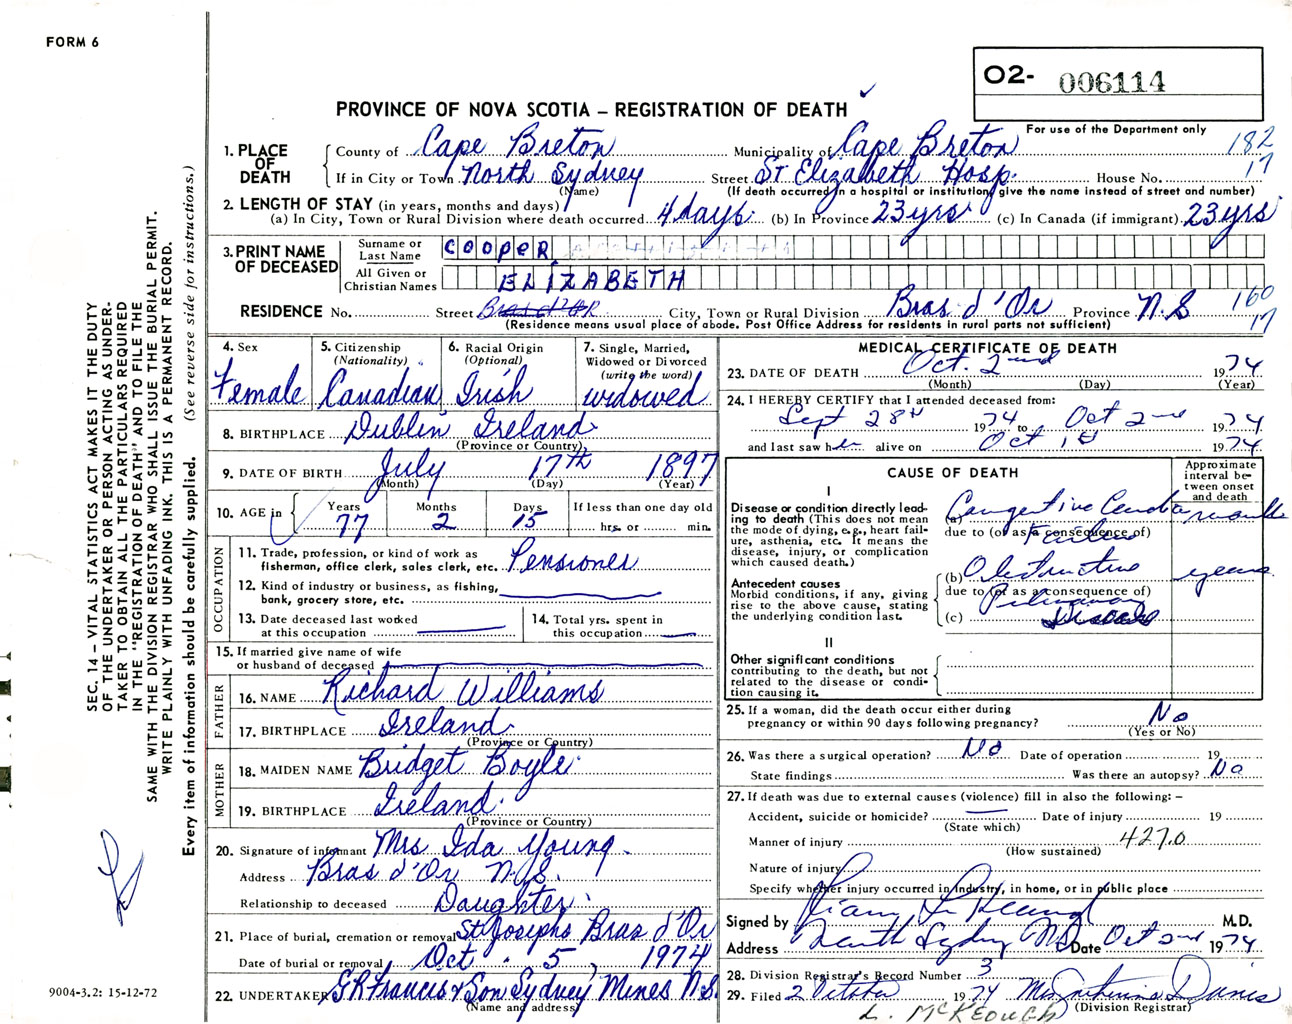 FORM 6
O2- 006114
PROVINCE OF NOVA SCOTIA – REGISTRATION OF DEATH
For use of the Department only
182
17
1. PLACE OF DEATH
County of Cape Breton Municipality of Cape Breton
If in City or Town North Sydney Street St Elizabeth Hosp. House No.
(Name) (If death occurred in a hospital or institution, give the name instead of street and number)
2. LENGTH OF STAY (in years, months and days)
(a) In City, Town or Rural Division where death occurred 4 days. (b) In Province 23 yrs. (c) In Canada (if immigrant) 23 yrs
3. PRINT NAME OF DECEASED
Surname or Last Name COOPER
All Given or Christian Names ELIZABETH
RESIDENCE No. Street Bras d'Or City, Town or Rural Division Bras d'Or Province N.S
160
17
(Residence means usual place of abode. Post Office Address for residents in rural parts not sufficient)
4. Sex Female
5. Citizenship (Nationality) Canadian
6. Racial Origin (Optional) Irish
7. Single, Married, Widowed or Divorced (write the word) widowed
8. BIRTHPLACE Dublin, Ireland.
(Province or Country)
9. DATE OF BIRTH July 17th 1897
(Month) (Day) (Year)
10. AGE in Years 77 Months 2 Days 15 If less than one day old hrs. or min.
OCCUPATION
11. Trade, profession, or kind of work as fisherman, office clerk, sales clerk, etc. Pensioner
12. Kind of industry or business, as fishing, bank, grocery store, etc.
13. Date deceased last worked at this occupation
14. Total yrs. spent in this occupation
15. If married give name of wife or husband of deceased
FATHER
16. NAME Richard Williams
17. BIRTHPLACE Ireland.
(Province or Country)
MOTHER
18. MAIDEN NAME Bridget Boyle
19. BIRTHPLACE Ireland.
(Province or Country)
20. Signature of informant Mrs Ida Young.
Address Bras d'Or N.S.
Relationship to deceased Daughter.
21. Place of burial, cremation or removal St Josephs Bras d'Or
Date of burial or removal Oct. 5, 1974
22. UNDERTAKER G R Francis & Son Sydney Mines N.S.
(Name and address)
MEDICAL CERTIFICATE OF DEATH
23. DATE OF DEATH Oct. 2nd 1974
(Month) (Day) (Year)
24. I HEREBY CERTIFY that I attended deceased from:
Sept 28th 1974 to Oct 2nd 1974
and last saw her alive on Oct 1st 1974
CAUSE OF DEATH
Approximate interval between onset and death
I
Disease or condition directly leading to death (This does not mean the mode of dying, e.g., heart failure, asthenia, etc. It means the disease, injury, or complication which caused death.)
(a) Congestive Cardiac
due to (or as a consequence of)
Failure
Antecedent causes
Morbid conditions, if any, giving rise to the above cause, stating the underlying condition last.
(b) Obstructive years
due to (or as a consequence of)
Pulmonary
(c) Disease
II
Other significant conditions
contributing to the death, but not related to the disease or condition causing it.
25. If a woman, did the death occur either during pregnancy or within 90 days following pregnancy? No
(Yes or No)
26. Was there a surgical operation? No Date of operation 19
State findings Was there an autopsy? No
27. If death was due to external causes (violence) fill in also the following: –
Accident, suicide or homicide? Date of injury 19
(State which)
Manner of injury 427.0
(How sustained)
Nature of injury
Specify whether injury occurred in industry, in home, or in public place
Signed by M.D.
Address North Sydney NS Date Oct 2nd 1974
28. Division Registrar's Record Number 3
29. Filed 2 October 1974
(Division Registrar)
L. McKEOUGH
SEC. 14 – VITAL STATISTICS ACT MAKES IT THE DUTY
OF THE UNDERTAKER OR PERSON ACTING AS UNDER-
TAKER TO OBTAIN ALL THE PARTICULARS REQUIRED
IN THE "REGISTRATION OF DEATH" AND TO FILE THE
SAME WITH THE DIVISION REGISTRAR WHO SHALL ISSUE THE BURIAL PERMIT.
WRITE PLAINLY WITH UNFADING INK. THIS IS A PERMANENT RECORD.
Every item of information should be carefully supplied. (See reverse side for instructions.)
9004-3.2: 15-12-72